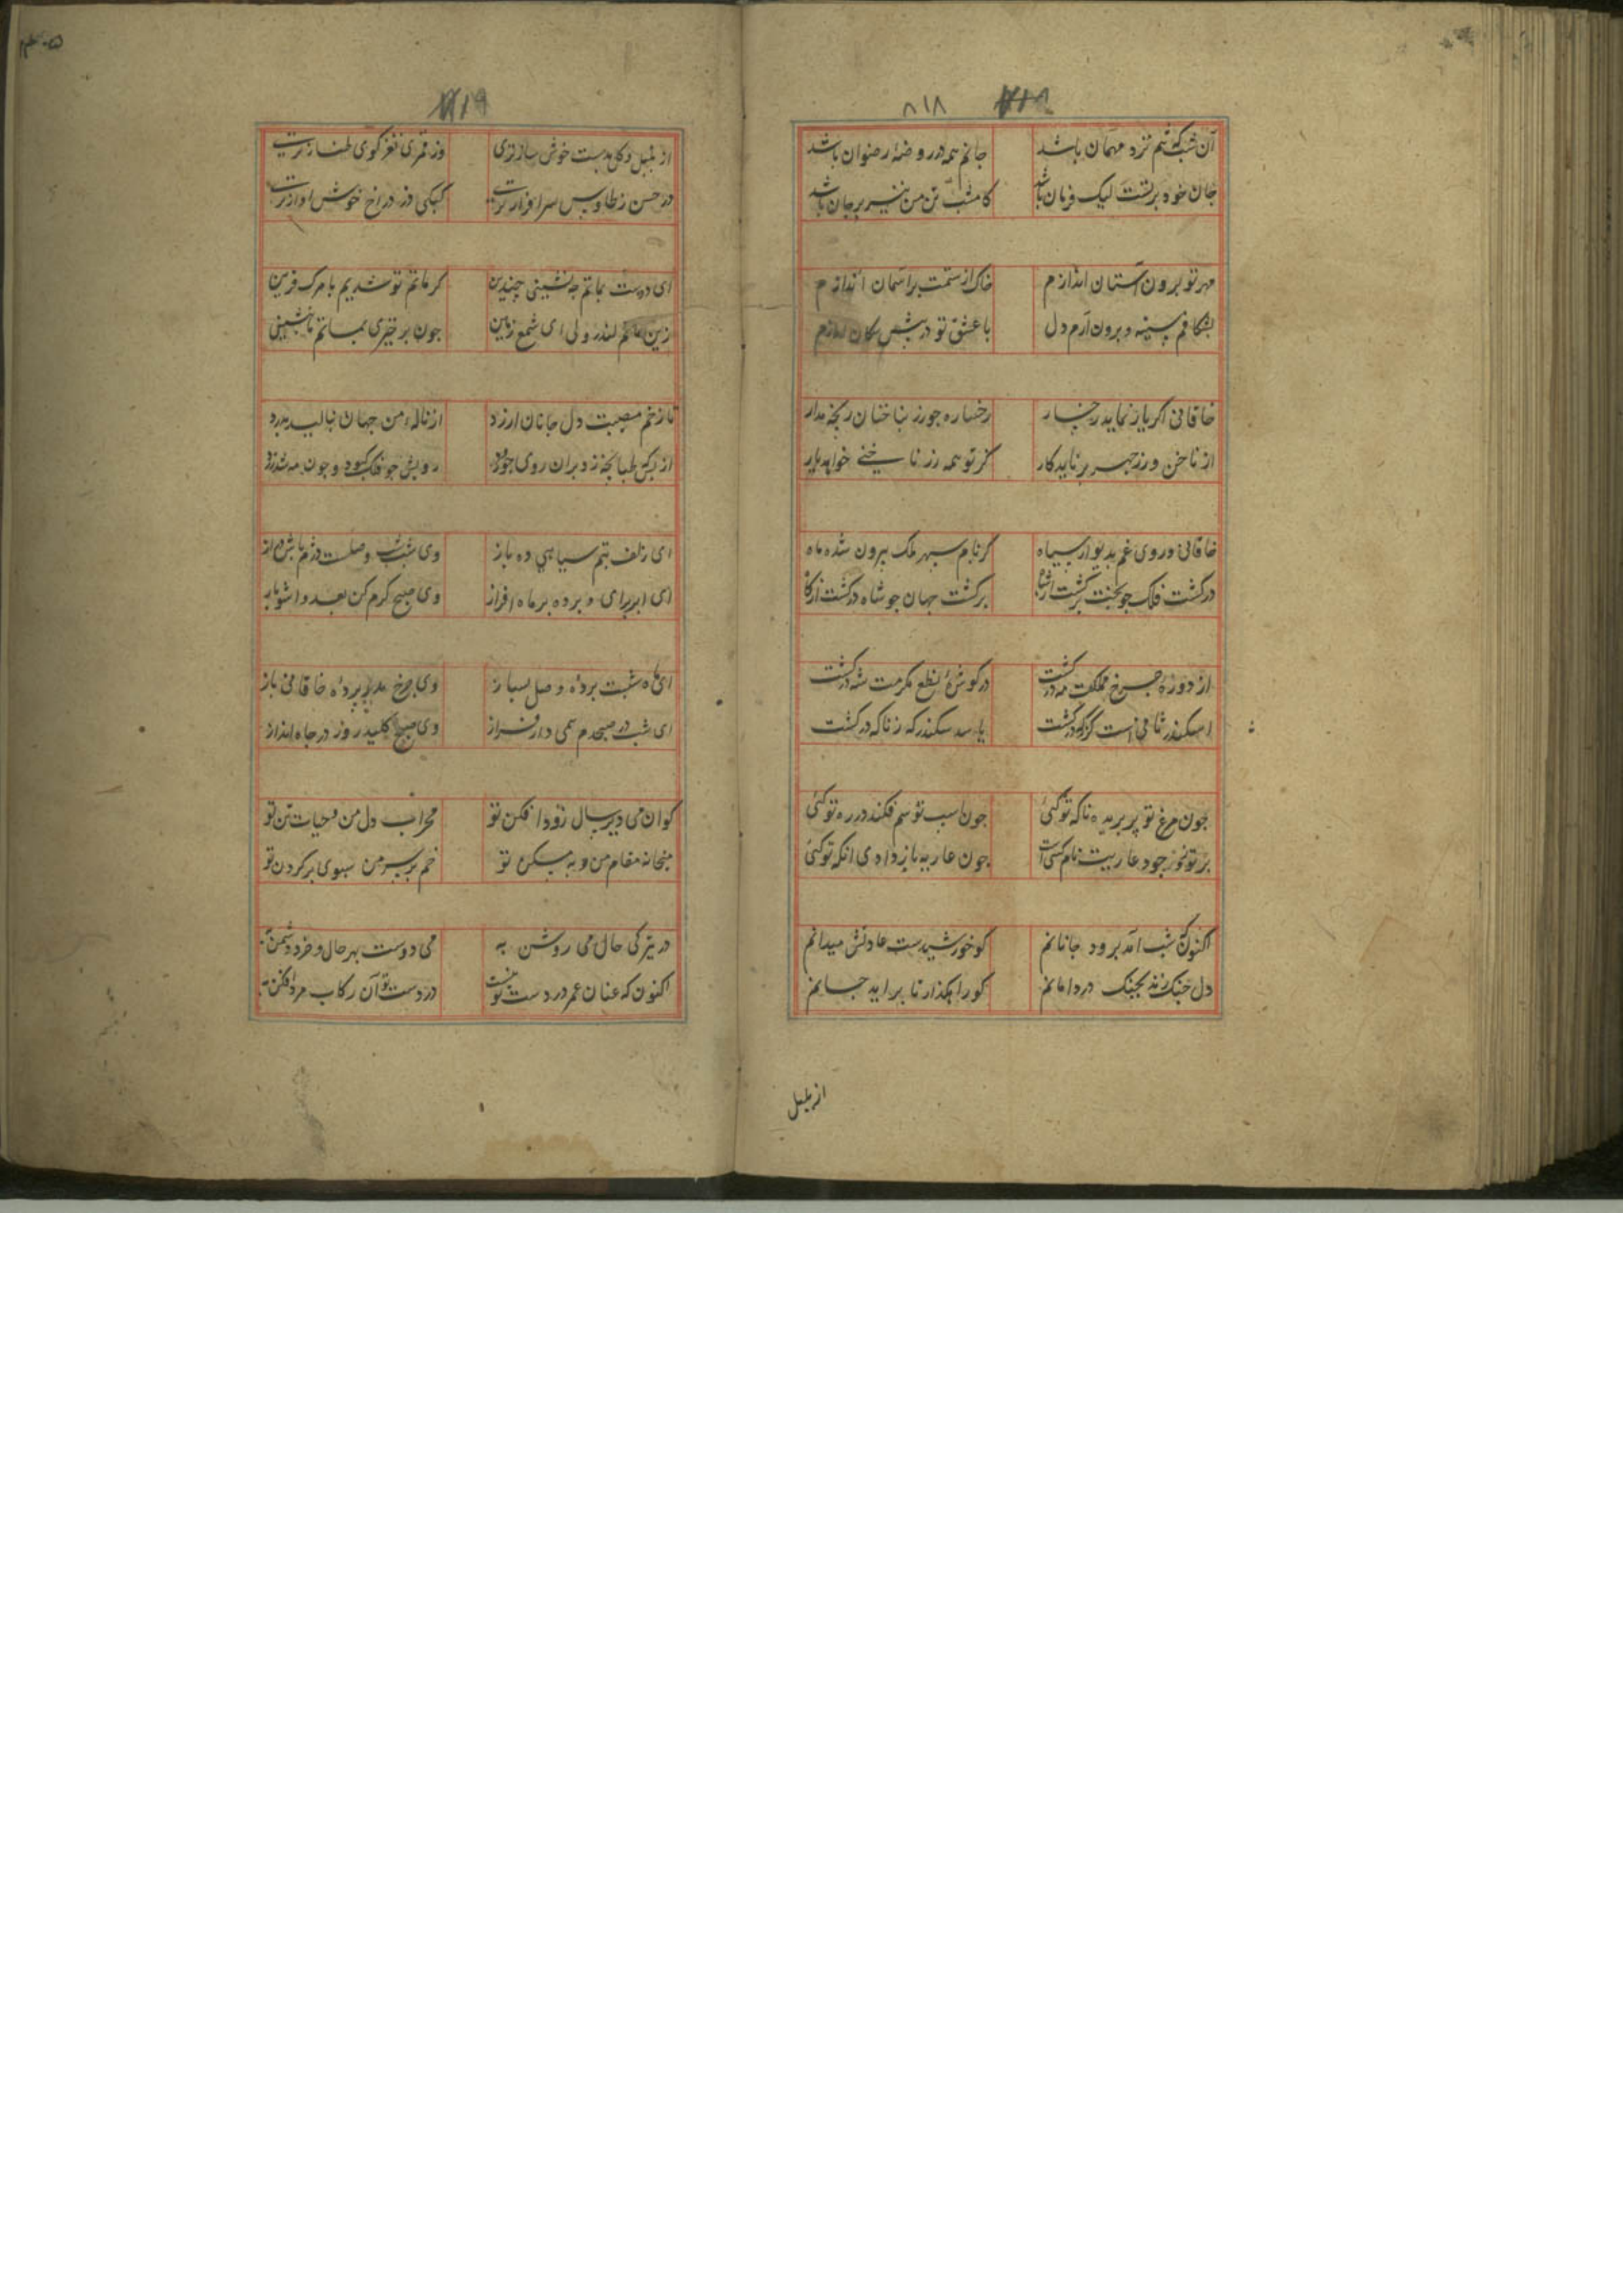 ۸۱۸
آن شب که تنم نزد مهمان باشد جانم همه در روضهٔ رضوان باشد
جان خود بر تست لیک فرمان باشد کامشب تن من نیز بر جان باشد
مهر تو برون آستان اندازم خاک از ستمت بر آسمان اندازم
بشکافم سینه و برون آرم دل با عشق تو در پیش سکان اندازم
خاقانی اکر یار نماید رخسار رخساره جو زر بناخنان رنجه مدار
از ناخن و زر جهر بر ناید کار کز تو همه زر ناخنی خواهد یار
خاقانی و روی غم بدیوار سیاه کز بام سپهر ملک بیرون شده ماه
در کشت فلک جو بخت برکشت از شاه برکشت جهان جو شاه درکشت از کاه
از دورهٔ جرخ مملکت مه درکشت در کوشهٔ نطع مکرمت شه درکشت
اسکندر ثانی است کز که درکشت یا سد سکندر که ز ناکه درکشت
جون مرغ تو پر بریده ناکه تو کئی جون اسب تو سم فکند در ره تو کئی
بر تو نجوز جود عاریت نام کسی است جون عاریه باز دادی انکه تو کئی
اکنون که شب آمد برود جانانم کو خورشیدست عادتش میدانم
دل جنک زند بجنک در دامانم کو را مکذار تا بر اید جانم
از بلبل
۸۱۹
از بلبل و کل بدست خوش ساز تری وز قمری نغز کوی طناز تری
در حسن ز طاوس سرافراز تری کبکی و ز دراج خوش اواز تری
ای دوست بماتم جه نشینی چندین کز ماتم تو شدیم با مرک قرین
زین ماتم اندرونی ای شمع زمین جون برخیزی بماتم ما بنشین
تا زخم مصیبت دل جانان ارزد از نالهٔ من جهان بنالید بدرد
از بس که طبانجه زد بران روی جو ورد رویش جو فلک کبود و جون مه شد زرد
ای زلف بتم سیاهی ده باز وی شب شب وصلست دژم باش دراز
ای ابر برای و برده بر ماه افراز وی صبح کرم کن بعدو اشو باز
ای ماه شبت بردهٔ وصل بساز وی جرخ مدر پردهٔ خاقانی باز
ای شب در صبحدم همی دار فراز وی صبح کلید روز در جاه انداز
کو ان می دیر سال زود افکن تو محراب دل من و حیات تن تو
میخانه مقام من و به مسکن تو خم بر سر من سبوی بر کردن تو
در تیرکی حال می روشن به می دوست بهر حال و خرد دشمن به
اکنون که عنان عمر در دست تو نیست در دست تو آن رکاب مرد افکن به